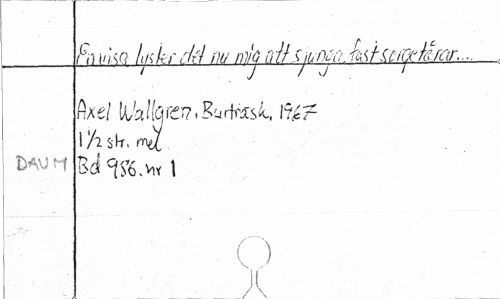 En visa lyster det nu mig att sjunga, fast sorgetårar....
Axel Wallgren, Burträsk, 1967
1 1/2 str. mel
DAUM Bd 956. nr 1